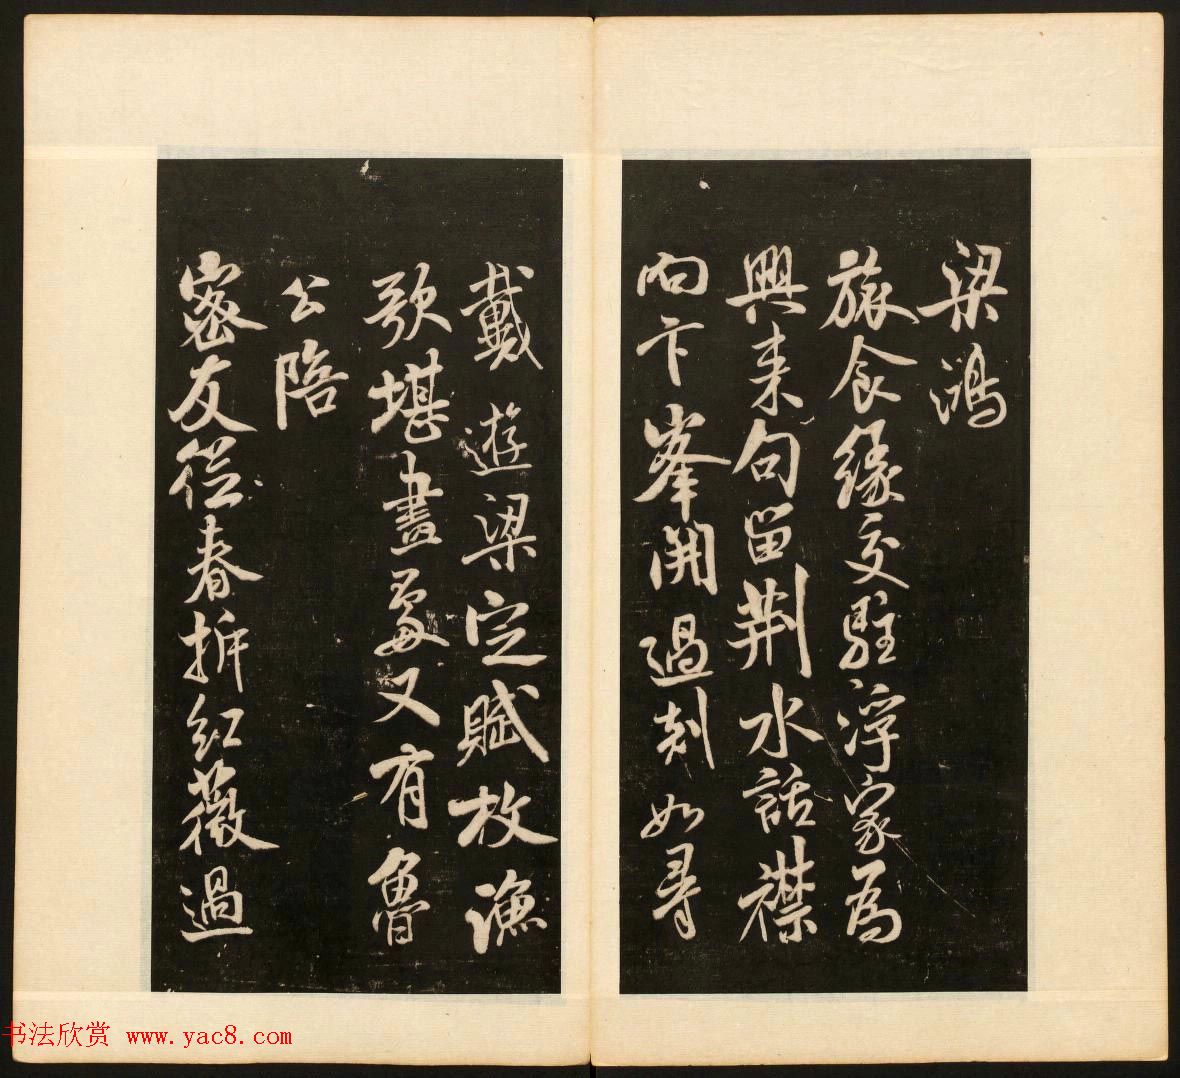 梁鴻
旅食緣交駐浮家為
興來句留荊水話襟
向卞峯開過剡如尋
戴遊梁定賦枚漁
歌堪畫處又有魯
公陪
密友從春拆紅薇過
书法欣赏 www.yac8.com